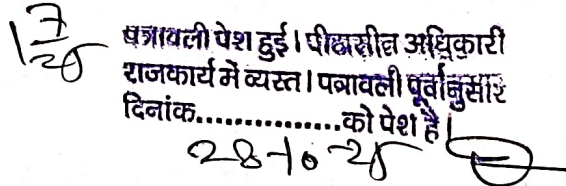 पत्रावली पेश हुई। पीठासीन अधिकारी
राजकार्य में व्यस्त। पत्रावली पूर्वानुसार
दिनांक................को पेश है।
28-10-25